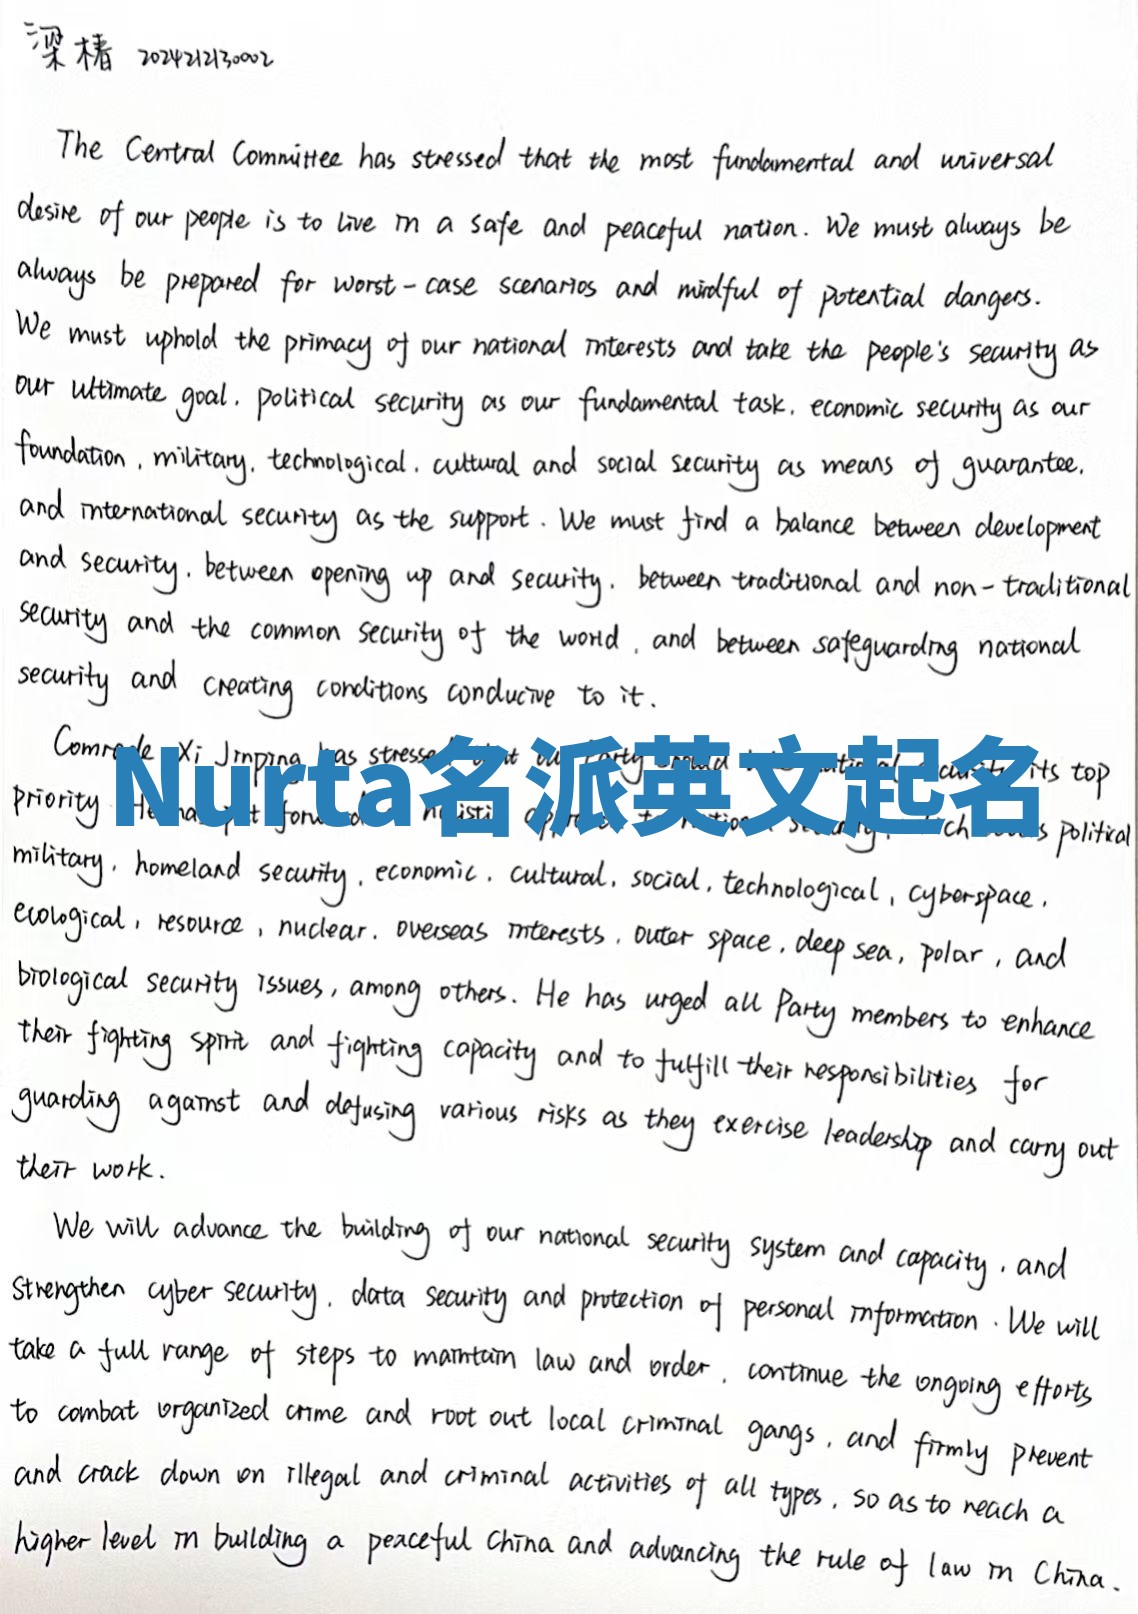 梁椿 2024212130002
The Central Committee has stressed that the most fundamental and universal
desire of our people is to live in a safe and peaceful nation. We must always be
always be prepared for worst-case scenarios and mindful of potential dangers.
We must uphold the primacy of our national interests and take the people's security as
our ultimate goal, political security as our fundamental task, economic security as our
foundation, military, technological, cultural and social security as means of guarantee,
and international security as the support. We must find a balance between development
and security, between opening up and security, between traditional and non-traditional
security and the common security of the world, and between safeguarding national
security and creating conditions conducive to it.
Comrade Xi Jinping has stressed that our Party its top
Nurta名派英文起名
priority He has put political
military, homeland security, economic, cultural, social, technological, cyberspace,
ecological, resource, nuclear, overseas interests, outer space, deep sea, polar, and
biological security issues, among others. He has urged all Party members to enhance
their fighting spirit and fighting capacity and to fulfill their responsibilities for
guarding against and defusing various risks as they exercise leadership and carry out
their work.
We will advance the building of our national security system and capacity, and
strengthen cyber security, data security and protection of personal information. We will
take a full range of steps to maintain law and order, continue the ongoing efforts
to combat organized crime and root out local criminal gangs, and firmly prevent
and crack down on illegal and criminal activities of all types, so as to reach a
higher level in building a peaceful China and advancing the rule of law in China.